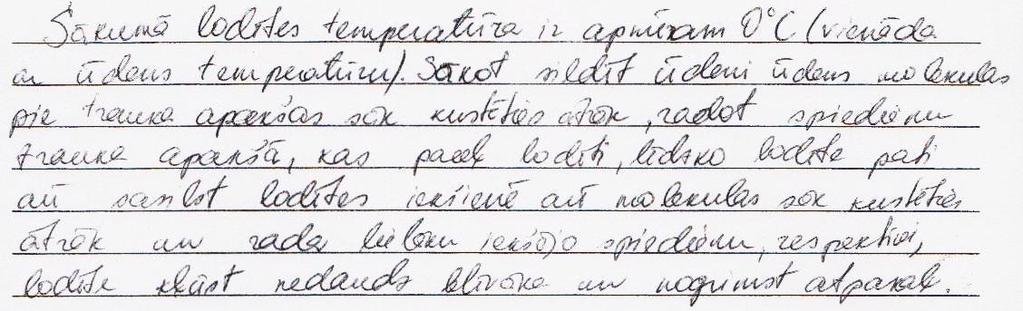 Sākumā lodītes temperatūra ir apmēram 0°C (vienāda
ar ūdens temperatūru). Sākot sildīt ūdeni ūdens molekulas
pie trauka apakšas sāk kustēties ātrāk, radot spiedienu
trauka apakšā, kas paceļ lodīti, līdzko lodīte pati
arī sasilst lodītes iekšienē arī molekulas sāk kustēties
ātrāk un rada lielāku iekšējo spiedienu, respektīvi,
lodīte kļūst nedaudz blīvāka un nogrimst atpakaļ.